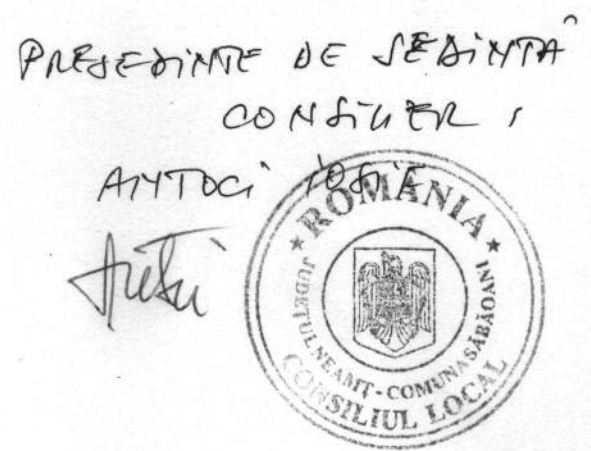 PREȘEDINTE DE ȘEDINȚĂ
CONSILIER,
ANTOCI IOSIF
★ ROMÂNIA ★
JUDEȚUL NEAMȚ - COMUNA SĂBĂOANI
CONSILIUL LOCAL